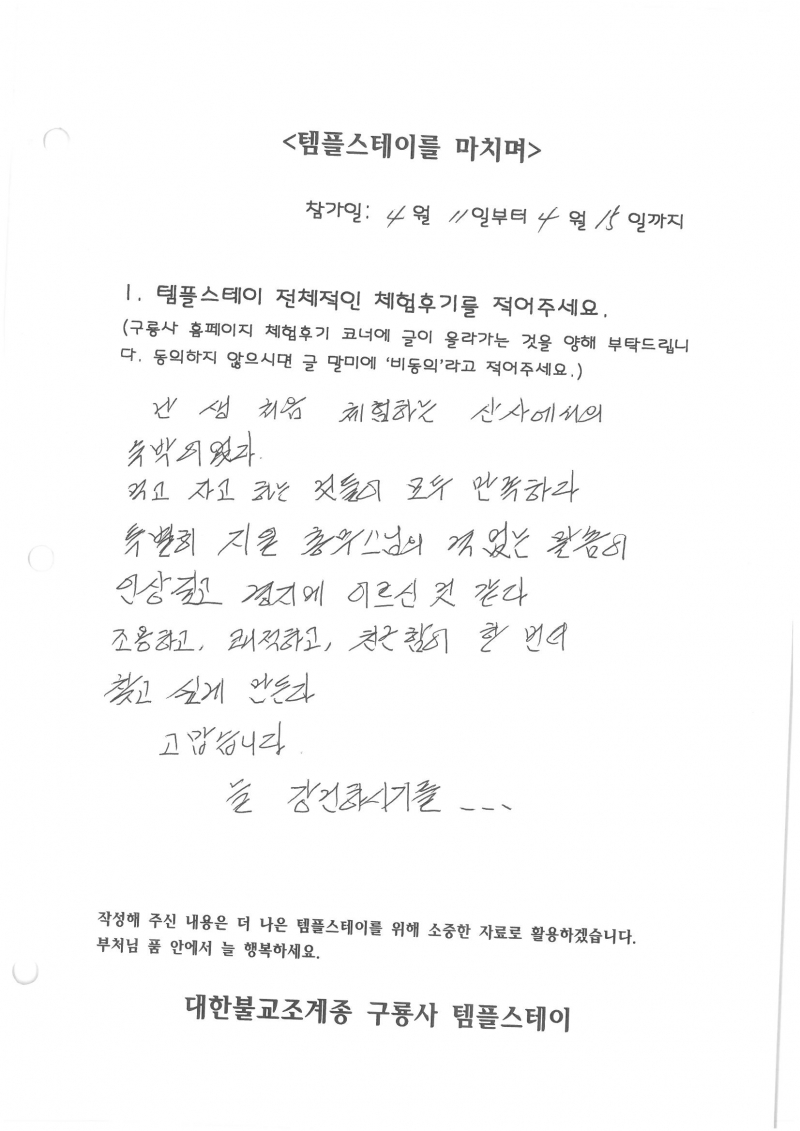 <템플스테이를 마치며>
참가일: 4월 11일부터 4월 15일까지
1. 템플스테이 전체적인 체험후기를 적어주세요.
(구룡사 홈페이지 체험후기 코너에 글이 올라가는 것을 양해 부탁드립니
다. 동의하지 않으시면 글 말미에 '비동의'라고 적어주세요.)
난 생 처음 체험하는 산사에서의
숙박이었다.
먹고 자고 하는 것들이 모두 만족하다
특별히 지은 총무스님의 격없는 말씀이
인상깊고 경지에 이르신 것 같다
조용하고, 쾌적하고, 친근함이 한 번더
찾고 싶게 만든다
고맙습니다.
늘 강건하시기를 ---
작성해 주신 내용은 더 나은 템플스테이를 위해 소중한 자료로 활용하겠습니다.
부처님 품 안에서 늘 행복하세요.
대한불교조계종 구룡사 템플스테이